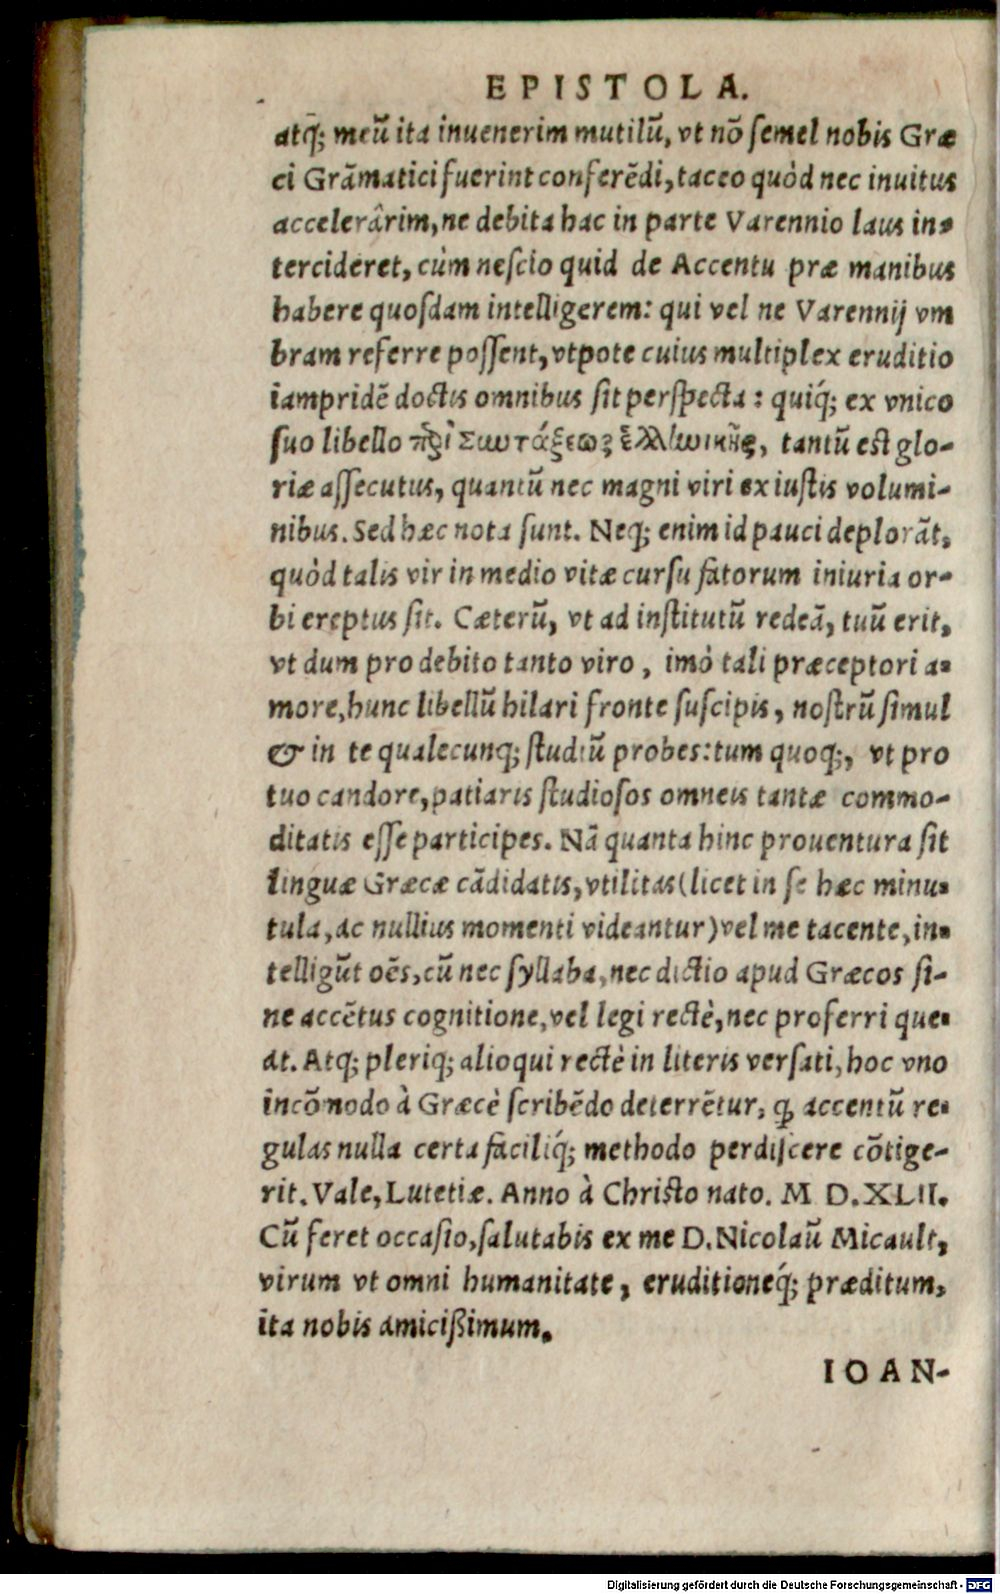 EPISTOLA.
atq́; meũ ita inuenerim mutilũ, vt nõ ſemel nobis Græ
ci Grãmatici fuerint conferẽdi, taceo quòd nec inuitus
accelerârim, ne debita hac in parte Varennio laus in-
tercideret, cùm neſcio quid de Accentu præ manibus
habere quoſdam intelligerem: qui vel ne Varennij vm
bram referre poſſent, vtpote cuius multiplex eruditio
iampridẽ doctis omnibus ſit perſpecta: quiq́; ex vnico
ſuo libello περὶ Συντάξεως ἑλληνικῆς, tantũ eſt glo-
riæ aſſecutus, quantũ nec magni viri ex iuſtis volumi-
nibus. Sed hæc nota ſunt. Neq; enim id pauci deplorãt,
quòd talis vir in medio vitæ curſu fatorum iniuria or-
bi ereptus ſit. Cæterũ, vt ad inſtitutũ redeã, tuũ erit,
vt dum pro debito tanto viro, imò tali præceptori a-
more, hunc libellũ hilari fronte ſuſcipis, noſtrũ ſimul
& in te qualecunq; ſtudiũ probes: tum quoq;, vt pro
tuo candore, patiaris ſtudioſos omneis tantæ commo-
ditatis eſſe participes. Nã quanta hinc prouentura ſit
linguæ Græcæ cãdidatis, vtilitas (licet in ſe hæc minu-
tula, ac nullius momenti videantur) vel me tacente, in-
telligũt oẽs, cũ nec ſyllaba, nec dictio apud Græcos ſi-
ne accẽtus cognitione, vel legi rectè, nec proferri que-
at. Atq; pleriq; alioqui rectè in literis verſati, hoc vno
incõmodo à Græcè ſcribẽdo deterrẽtur, ꝙ accentũ re-
gulas nulla certa faciliq́; methodo perdiſcere cõtige-
rit. Vale, Lutetiæ. Anno à Chriſto nato. M D. XLII.
Cũ feret occaſio, ſalutabis ex me D. Nicolaũ Micault,
virum vt omni humanitate, eruditioneq́; præditum,
ita nobis amicißimum.
IOAN-
Digitalisierung gefördert durch die Deutsche Forschungsgemeinschaft - DFG